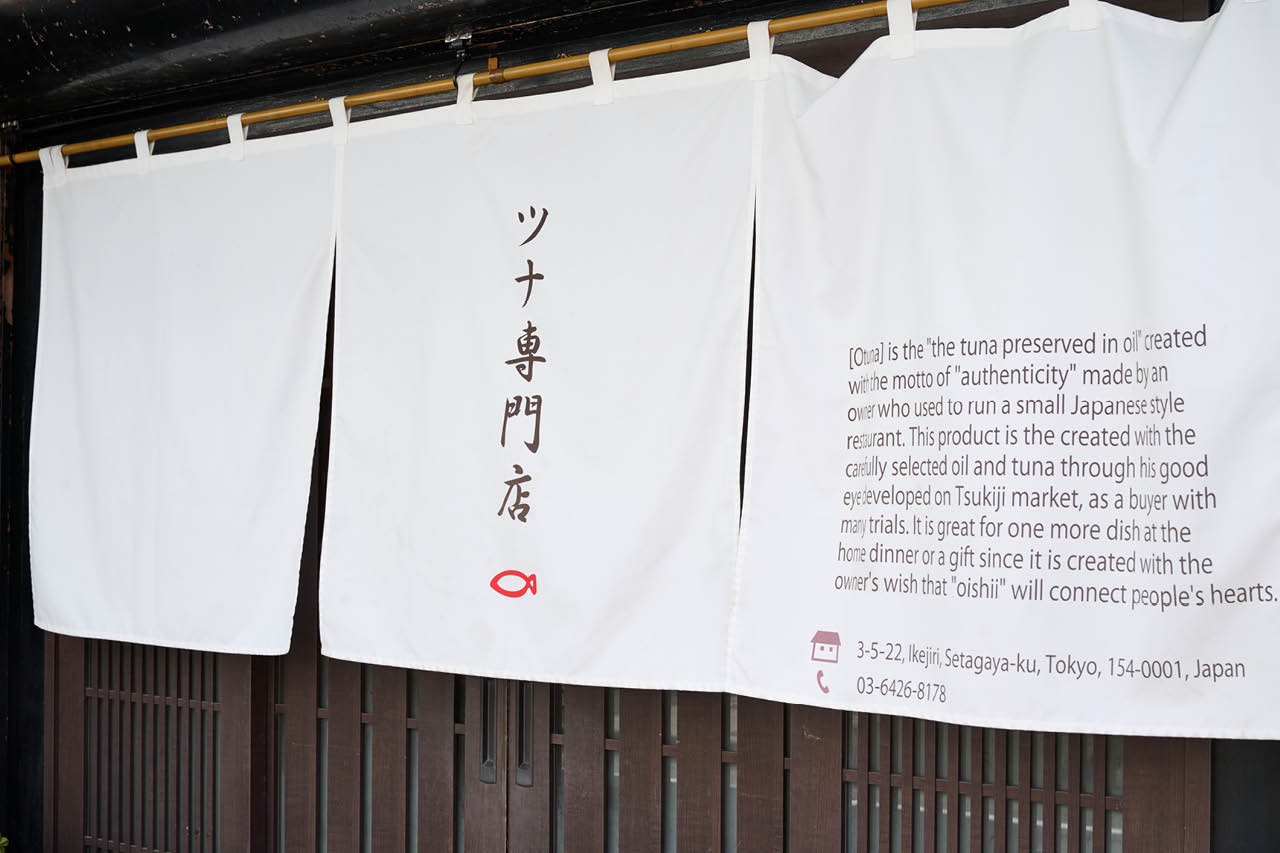 ツナ専門店
[Otuna] is the "the tuna preserved in oil" created
with the motto of "authenticity" made by an
owner who used to run a small Japanese style
restaurant. This product is the created with the
carefully selected oil and tuna through his good
eye developed on Tsukiji market, as a buyer with
many trials. It is great for one more dish at the
home dinner or a gift since it is created with the
owner's wish that "oishii" will connect people's hearts.
3-5-22, Ikejiri, Setagaya-ku, Tokyo, 154-0001, Japan
03-6426-8178